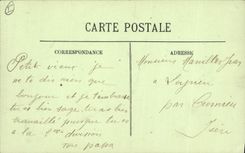 CARTE POSTALE
CORRESPONDANCE
ADRESSE
Petit vieux je
ne te dis rien que
bonjour et je t'embrasse
tu es bien sage tu as bien
travaillé puisque tu es
à la 1ère division
ton papa
Monsieur Jean
à
par
Isère